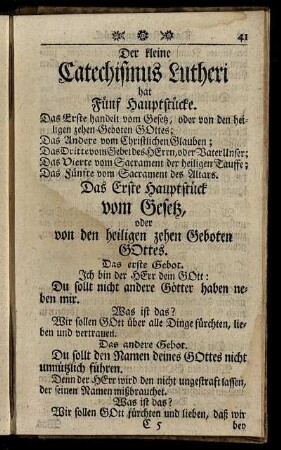 41
Der kleine
Catechismus Lutheri
hat
Fünf Hauptstücke.
Das Erste handelt vom Gesetz, oder von den hei-
ligen zehen Geboten GOttes;
Das Andere vom Christlichen Glauben;
Das Dritte vom Gebet des HErrn, oder Vater Unser;
Das Vierte vom Sacrament der heiligen Tauffe;
Das Fünfte vom Sacrament des Altars.
Das Erste Hauptstück
vom Gesetz,
oder
von den heiligen zehen Geboten
GOttes.
Das erste Gebot.
Ich bin der HErr dein GOtt:
Du sollt nicht andere Götter haben ne-
ben mir.
Was ist das?
Wir sollen GOtt über alle Dinge fürchten, lie-
ben und vertrauen.
Das andere Gebot.
Du sollt den Namen deines GOttes nicht
unnützlich führen.
Denn der HErr wird den nicht ungestraft lassen,
der seinen Namen mißbrauchet.
Was ist das?
Wir sollen GOtt fürchten und lieben, daß wir
C 5 bey